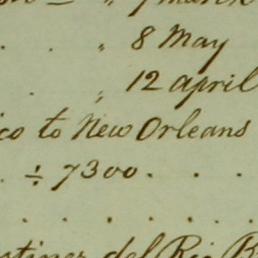 " 7 March
. . " 8 May
. " 12 april
co to New Orleans
. ÷ 7300. . .
. . . . . .
stines del Rio B